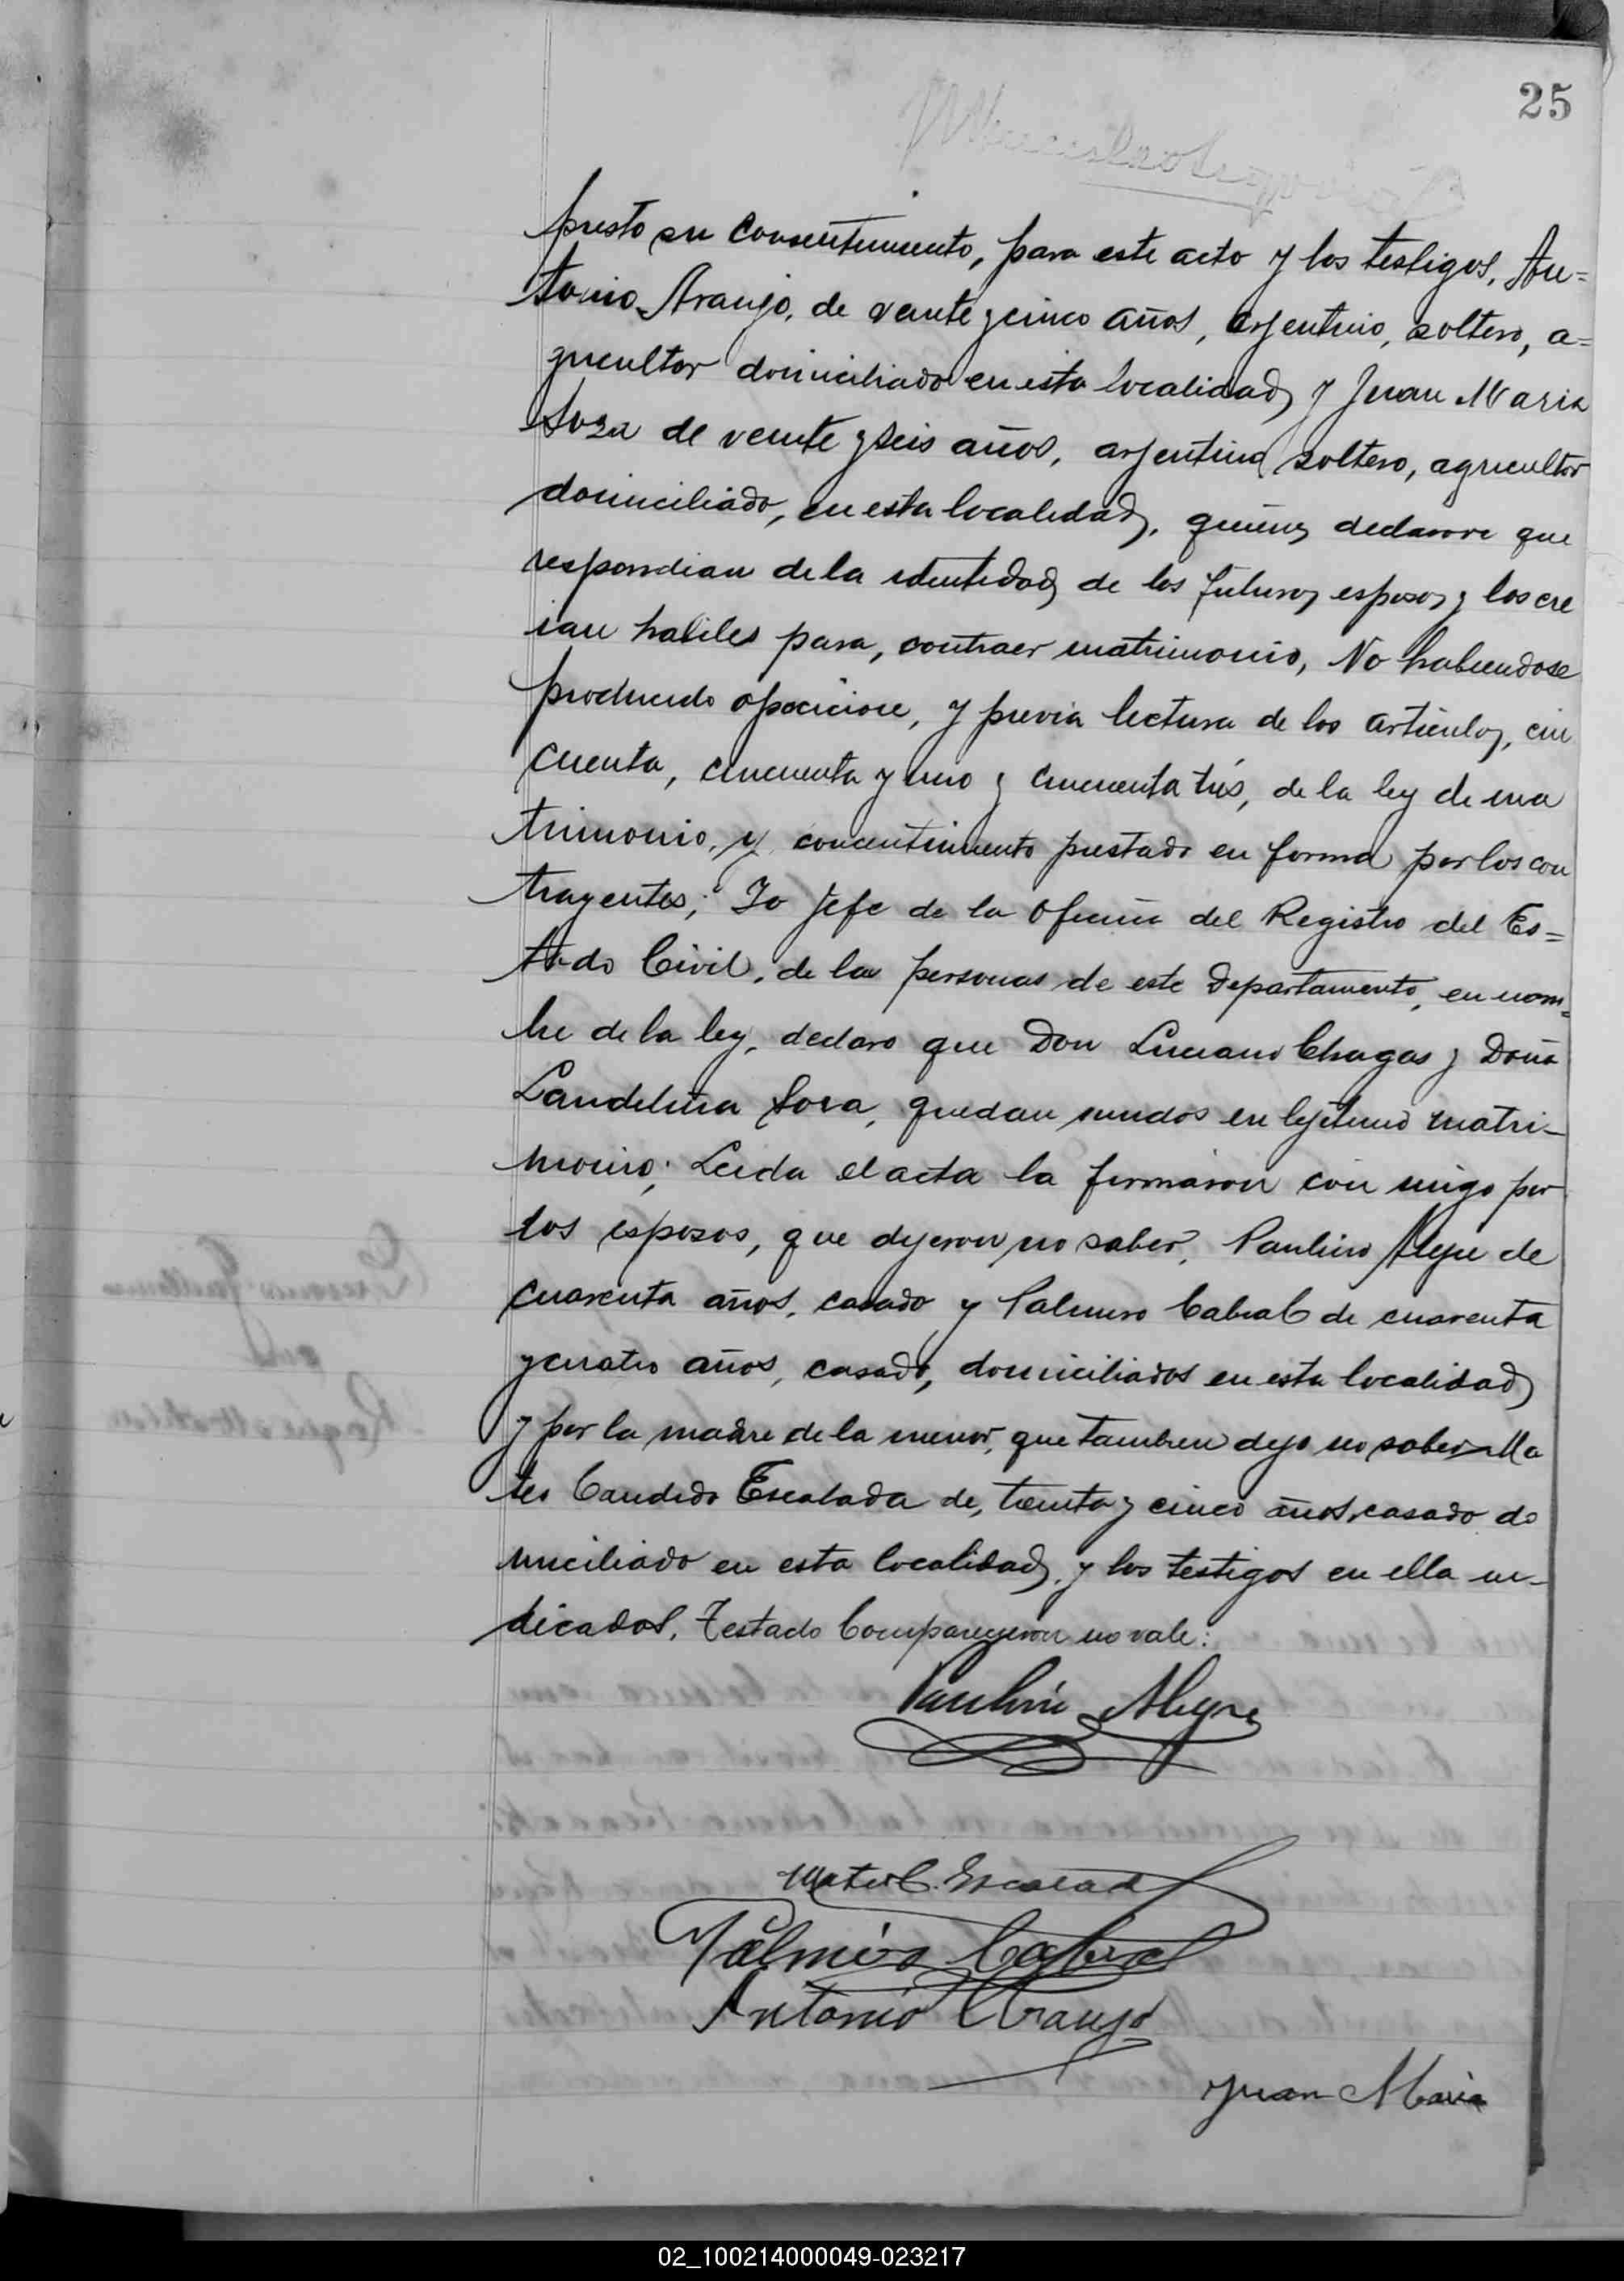 25
presto su consentimiento, para este acto y los testigos, An=
tonio Araujo, de veinte y cinco años, argentino, soltero, a=
gricultor domiciliado en esta localidad, y Juan Maria
Soza de veinte y seis años, argentino soltero, agricultor
domiciliado, en esta localidad, quienes declararon que
respondian de la identidad de los futuros esposos y los cre
ian habiles para, contraer matrimonio, No habiendose
producido oposicion, y previa lectura de los articulos, cin
cuenta, cincuenta y uno y cincuenta tres, de la ley de ma
trimonio, y concentimiento prestado en forma por los con
trayentes; Yo Jefe de la Oficina del Registro del Es=
tado Civil, de las personas de este Departamento, en nom=
bre de la ley, declaro que Don Luciano Chagas y Doña
Landelina Soza, quedan unidos en lejitimo matri-
monio; Leida el acta la firmaron con migo por
los esposos, que dijeron no saber, Paulino Alegre de
cuarenta años, casado y Palmiro Cabral de cuarenta
y cuatro años, casado, domiciliados en esta localidad
y por la madre de la menor, que tambien dijo no saber Ma
teo Candido Escalada de, treinta y cinco años, casado do
miciliado en esta localidad, y los testigos en ella in-
dicados, Testado Comparecieron no vale:
Paulino Alegre
Mateo C. Escalada
Palmiro Cabral
Antonio Araujo
Juan Maria
02_100214000049-023217